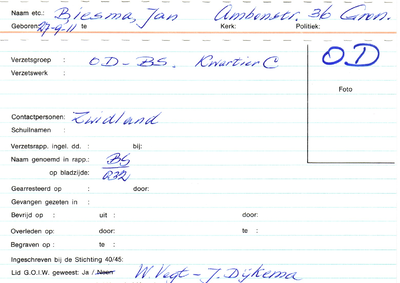 Naam etc.: Biesma, Jan Ambonstr. 36 Gron.
Geboren: 27-9-11 te Kerk: Politiek:
Verzetsgroep : OD-BS. Kwartier C OD
Verzetswerk :
Foto
Contactpersonen: Zuidland
Schuilnamen :
Verzetsrapp. ingel. dd. : bij:
Naam genoemd in rapp.: BS
op bladzijde: 232
Gearresteerd op : door:
Gevangen gezeten in :
Bevrijd op : uit : door:
Overleden op: door: te :
Begraven op : te :
Ingeschreven bij de Stichting 40/45:
Lid G.O.I.W. geweest: Ja / Neen W. Vegt - J. Dijkema